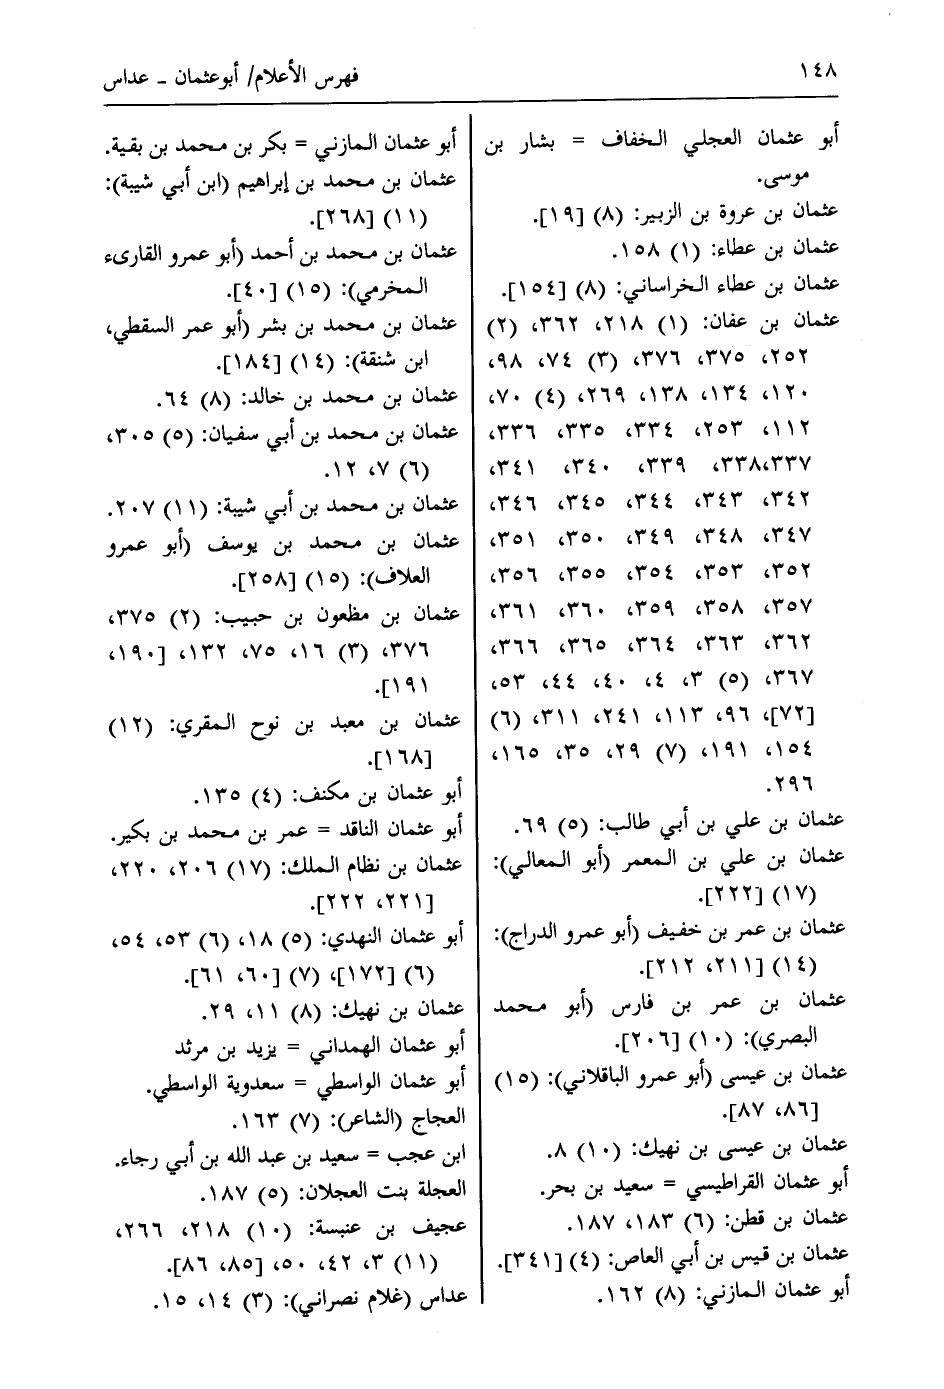 ١٤٨
فهرس الأعلام/ أبوعثمان ـ عداس
أبو عثمان العجلي الخفاف = بشار بن
موسى.
عثمان بن عروة بن الزبير: (٨) [١٩].
عثمان بن عطاء: (١) ١٥٨.
عثمان بن عطاء الخراساني: (٨) [١٥٤].
عثمان بن عفان: (١) ٢١٨، ٣٦٢، (٢)
٢٥٢، ٣٧٥، ٣٧٦، (٣) ٧٤، ٩٨،
١٢٠، ١٣٤، ١٣٨، ٢٦٩، (٤) ٧٠،
١١٢، ٢٥٣، ٣٣٤، ٣٣٥، ٣٣٦،
٣٣٧،٣٣٨، ٣٣٩، ٣٤٠، ٣٤١،
٣٤٢، ٣٤٣، ٣٤٤، ٣٤٥، ٣٤٦،
٣٤٧، ٣٤٨، ٣٤٩، ٣٥٠، ٣٥١،
٣٥٢، ٣٥٣، ٣٥٤، ٣٥٥، ٣٥٦،
٣٥٧، ٣٥٨، ٣٥٩، ٣٦٠، ٣٦١،
٣٦٢، ٣٦٣، ٣٦٤، ٣٦٥، ٣٦٦،
٣٦٧، (٥) ٣، ٤، ٤٠، ٤٤، ٥٣،
[٧٢]، ٩٦، ١١٣، ٢٤١، ٣١١، (٦)
١٥٤، ١٩١، (٧) ٢٩، ٣٥، ١٦٥،
٢٩٦.
عثمان بن علي بن أبي طالب: (٥) ٦٩.
عثمان بن علي بن المعمر (أبو المعالي):
(١٧) [٢٢٢].
عثمان بن عمر بن خفيف (أبو عمرو الدراج):
(١٤) [٢١١، ٢١٢].
عثمان بن عمر بن فارس (أبو محمد
البصري): (١٠) [٢٠٦].
عثمان بن عيسى (أبو عمرو الباقلاني): (١٥)
[٨٦، ٨٧].
عثمان بن عيسى بن نهيك: (١٠) ٨.
أبو عثمان القراطيسي = سعيد بن بحر.
عثمان بن قطن: (٦) ١٨٣، ١٨٧.
عثمان بن قيس بن أبي العاص: (٤) [٣٤١].
أبو عثمان المازني: (٨) ١٦٢.
أبو عثمان المازني = بكر بن محمد بن بقية.
عثمان بن محمد بن إبراهيم (ابن أبي شيبة):
(١١) [٢٦٨].
عثمان بن محمد بن أحمد (أبو عمرو القارىء
المخرمي): (١٥) [٤٠].
عثمان بن محمد بن بشر (أبو عمر السقطي،
ابن شنقة): (١٤) [١٨٤].
عثمان بن محمد بن خالد: (٨) ٦٤.
عثمان بن محمد بن أبي سفيان: (٥) ٣٠٥،
(٦) ٧، ١٢.
عثمان بن محمد بن أبي شيبة: (١١) ٢٠٧.
عثمان بن محمد بن يوسف (أبو عمرو
العلاف): (١٥) [٢٥٨].
عثمان بن مظعون بن حبيب: (٢) ٣٧٥،
٣٧٦، (٣) ١٦، ٧٥، ١٣٢، [١٩٠،
١٩١].
عثمان بن معبد بن نوح المقري: (١٢)
[١٦٨].
أبو عثمان بن مكنف: (٤) ١٣٥.
أبو عثمان الناقد = عمر بن محمد بن بكير.
عثمان بن نظام الملك: (١٧) ٢٠٦، ٢٢٠،
[٢٢١، ٢٢٢].
أبو عثمان النهدي: (٥) ١٨، (٦) ٥٣، ٥٤،
(٦) [١٧٢]، (٧) [٦٠، ٦١].
عثمان بن نهيك: (٨) ١١، ٢٩.
أبو عثمان الهمداني = يزيد بن مرثد
أبو عثمان الواسطي = سعدوية الواسطي.
العجاج (الشاعر): (٧) ١٦٣.
ابن عجب = سعيد بن عبد الله بن أبي رجاء.
العجلة بنت العجلان: (٥) ١٨٧.
عجيف بن عنبسة: (١٠) ٢١٨، ٢٦٦،
(١١) ٣، ٤٢، ٥٠، [٨٥، ٨٦].
عداس (غلام نصراني): (٣) ١٤، ١٥.